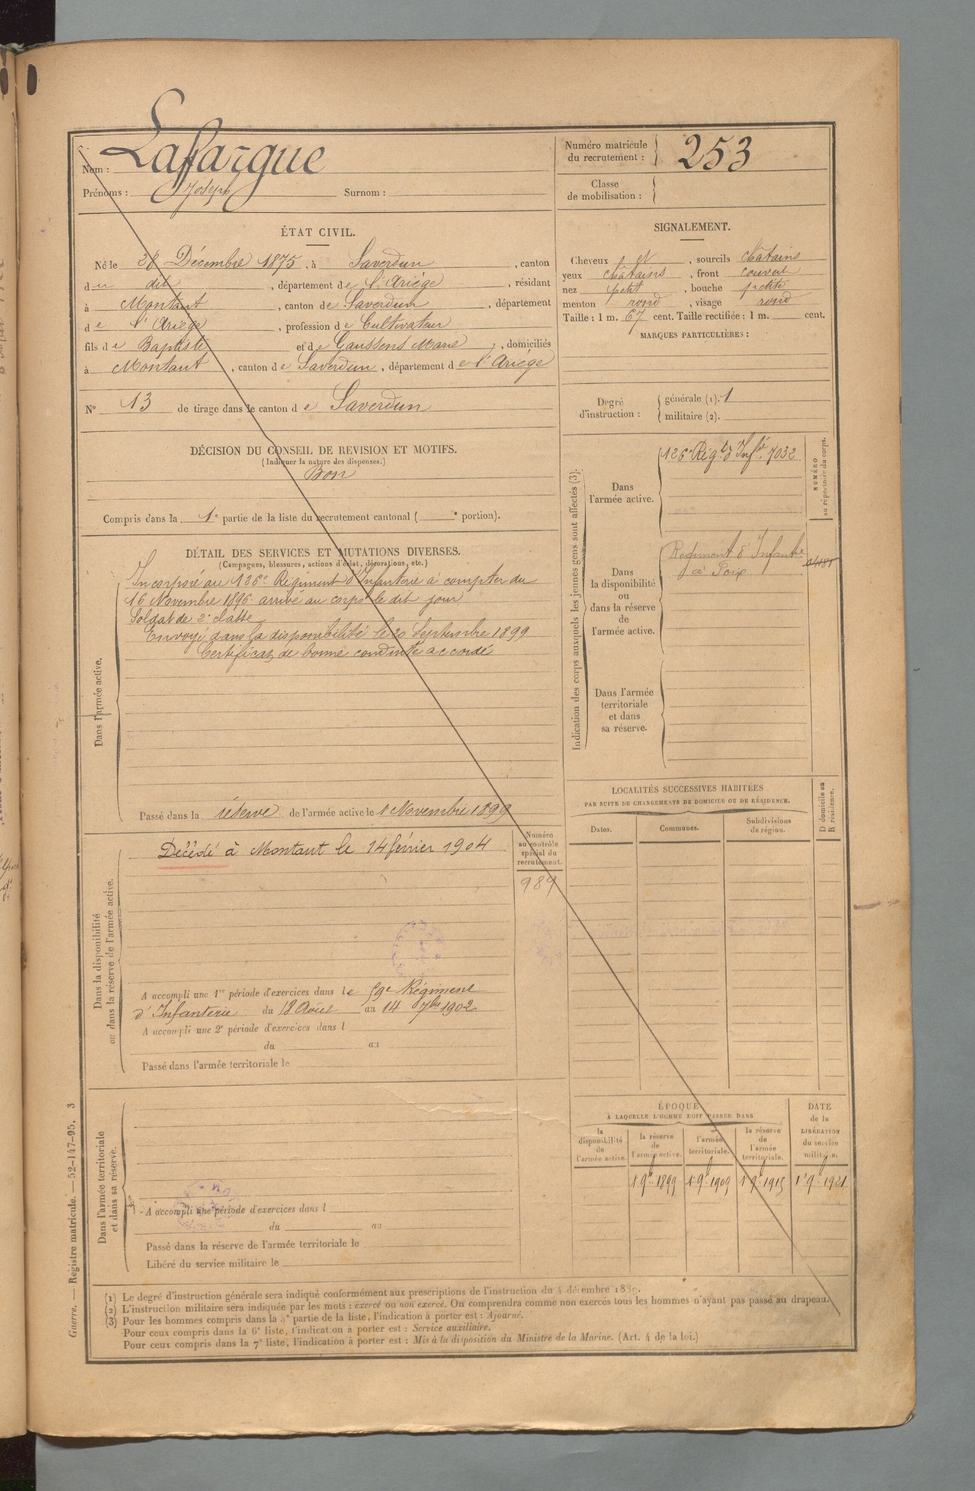 Nom : Lafargue
Prénoms : Joseph Surnom :
Numéro matricule du recrutement : 253
Classe de mobilisation :
ÉTAT CIVIL.
Né le 28 Décembre 1875, à Saverdun, canton
du dit, département de l'Ariège, résidant
à Montaut, canton de Saverdun, département
de l'Ariège, profession de Cultivateur
fils de Baptiste et de Gaussens Marie, domiciliés
à Montaut, canton de Saverdun, département de l'Ariège
N° 13 de tirage dans le canton de Saverdun
SIGNALEMENT.
Cheveux et, sourcils châtains
yeux châtains, front couvert
nez petit, bouche petite
menton rond, visage rond
Taille : 1 m. 67 cent. Taille rectifiée : 1 m. cent.
MARQUES PARTICULIÈRES :
Degré d'instruction : générale (1). 1
militaire (2).
DÉCISION DU CONSEIL DE REVISION ET MOTIFS.
(Indiquer la nature des dispenses.)
Bon
Compris dans la 1e partie de la liste du recrutement cantonal ( e portion).
DÉTAIL DES SERVICES ET MUTATIONS DIVERSES.
(Campagnes, blessures, actions d'éclat, décorations, etc.)
Dans l'armée active.
Incorporé au 126e Régiment d'Infanterie à compter du
16 Novembre 1896 arrivé au corps le dit jour
Soldat de 2e classe
Envoyé dans la disponibilité le 20 Septembre 1899
Certificat de bonne conduite accordé
Passé dans la réserve de l'armée active le 1 Novembre 1899
Indication des corps auxquels les jeunes gens sont affectés (3).
NUMÉRO au répertoire du corps.
Dans l'armée active.
126e Rég.t d'Inf.ie 7032
Dans la disponibilité ou dans la réserve de l'armée active.
Régiment d'Infanterie
de Foix
Dans l'armée territoriale et dans sa réserve.
Dans la disponibilité ou dans la réserve de l'armée active.
Décédé à Montaut le 14 février 1904
Numéro au contrôle spécial du recrutement.
989
A accompli une 1re période d'exercices dans le 59e Régiment
d'Infanterie du 18 Août au 14 7bre 1902
A accompli une 2e période d'exercices dans l
du au
Passé dans l'armée territoriale le
LOCALITÉS SUCCESSIVES HABITÉES
PAR SUITE DE CHANGEMENTS DE DOMICILE OU DE RÉSIDENCE.
D domicile ou R résidence.
Dates. Communes. Subdivisions de région.
Dans l'armée territoriale et dans sa réserve.
A accompli une période d'exercices dans l
du au
Passé dans la réserve de l'armée territoriale le
Libéré du service militaire le
ÉPOQUE
À LAQUELLE L'HOMME DOIT PASSER DANS
la disponibilité de l'armée active.
la réserve de l'armée active.
l'armée territoriale.
la réserve de l'armée territoriale.
DATE de la LIBÉRATION du service militaire.
1 9bre 1899 1 9bre 1909 1 9bre 1915 1er 9bre 1921
Guerre. — Registre matricule. — 52-147-95. 3
(1) Le degré d'instruction générale sera indiqué conformément aux prescriptions de l'instruction du 4 décembre 1889.
(2) L'instruction militaire sera indiquée par les mots : exercé ou non exercé. On comprendra comme non exercés tous les hommes n'ayant pas passé au drapeau.
(3) Pour les hommes compris dans la 5e partie de la liste, l'indication à porter est : Ajourné.
Pour ceux compris dans la 6e liste, l'indication à porter est : Service auxiliaire.
Pour ceux compris dans la 7e liste, l'indication à porter est : Mis à la disposition du Ministre de la Marine. (Art. 4 de la loi.)